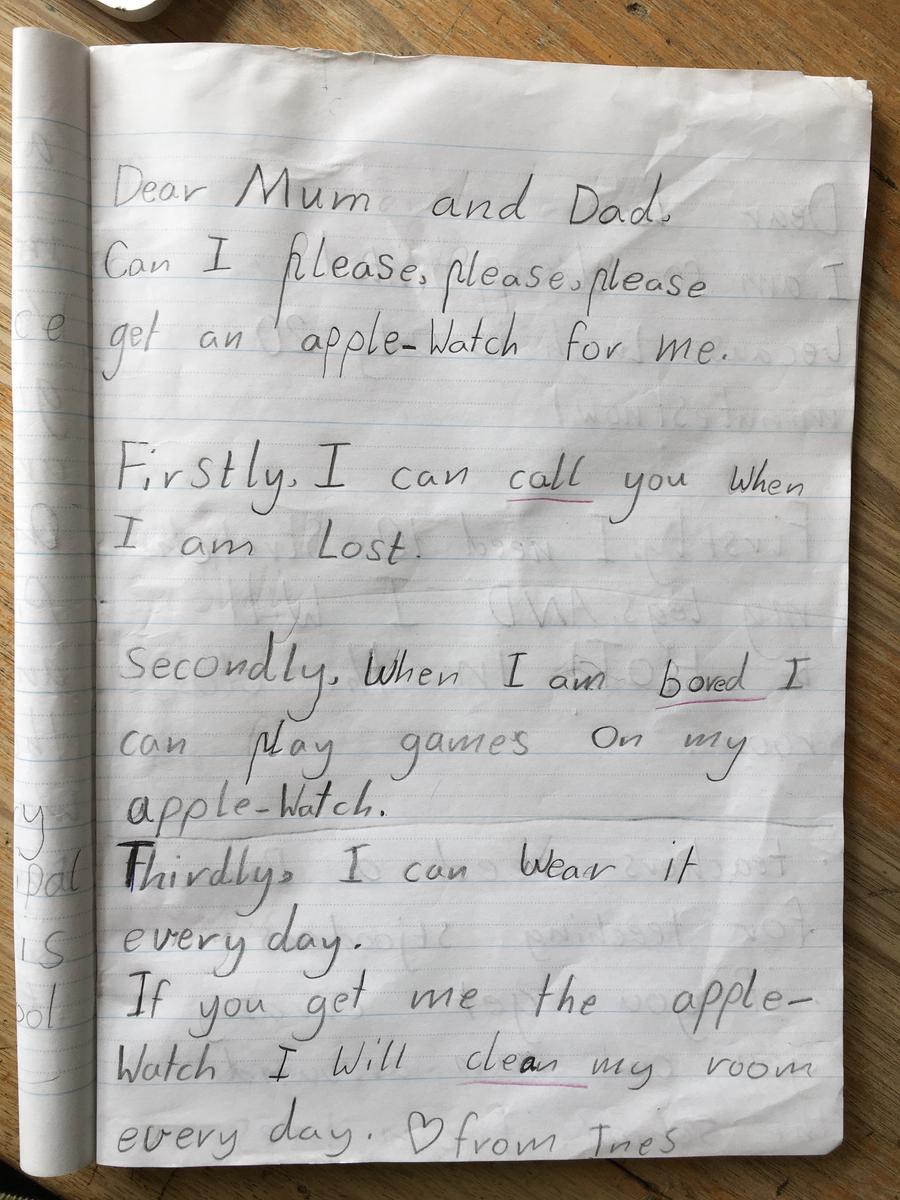 Dear Mum and Dad.
Can I please, please, please
get an apple-Watch for me.
Firstly, I can call you when
I am Lost.
Secondly, When I am bored I
can play games on my
apple-Watch.
Thirdly, I can wear it
every day.
If you get me the apple-
Watch I Will clean my room
every day. ♡ from Ines